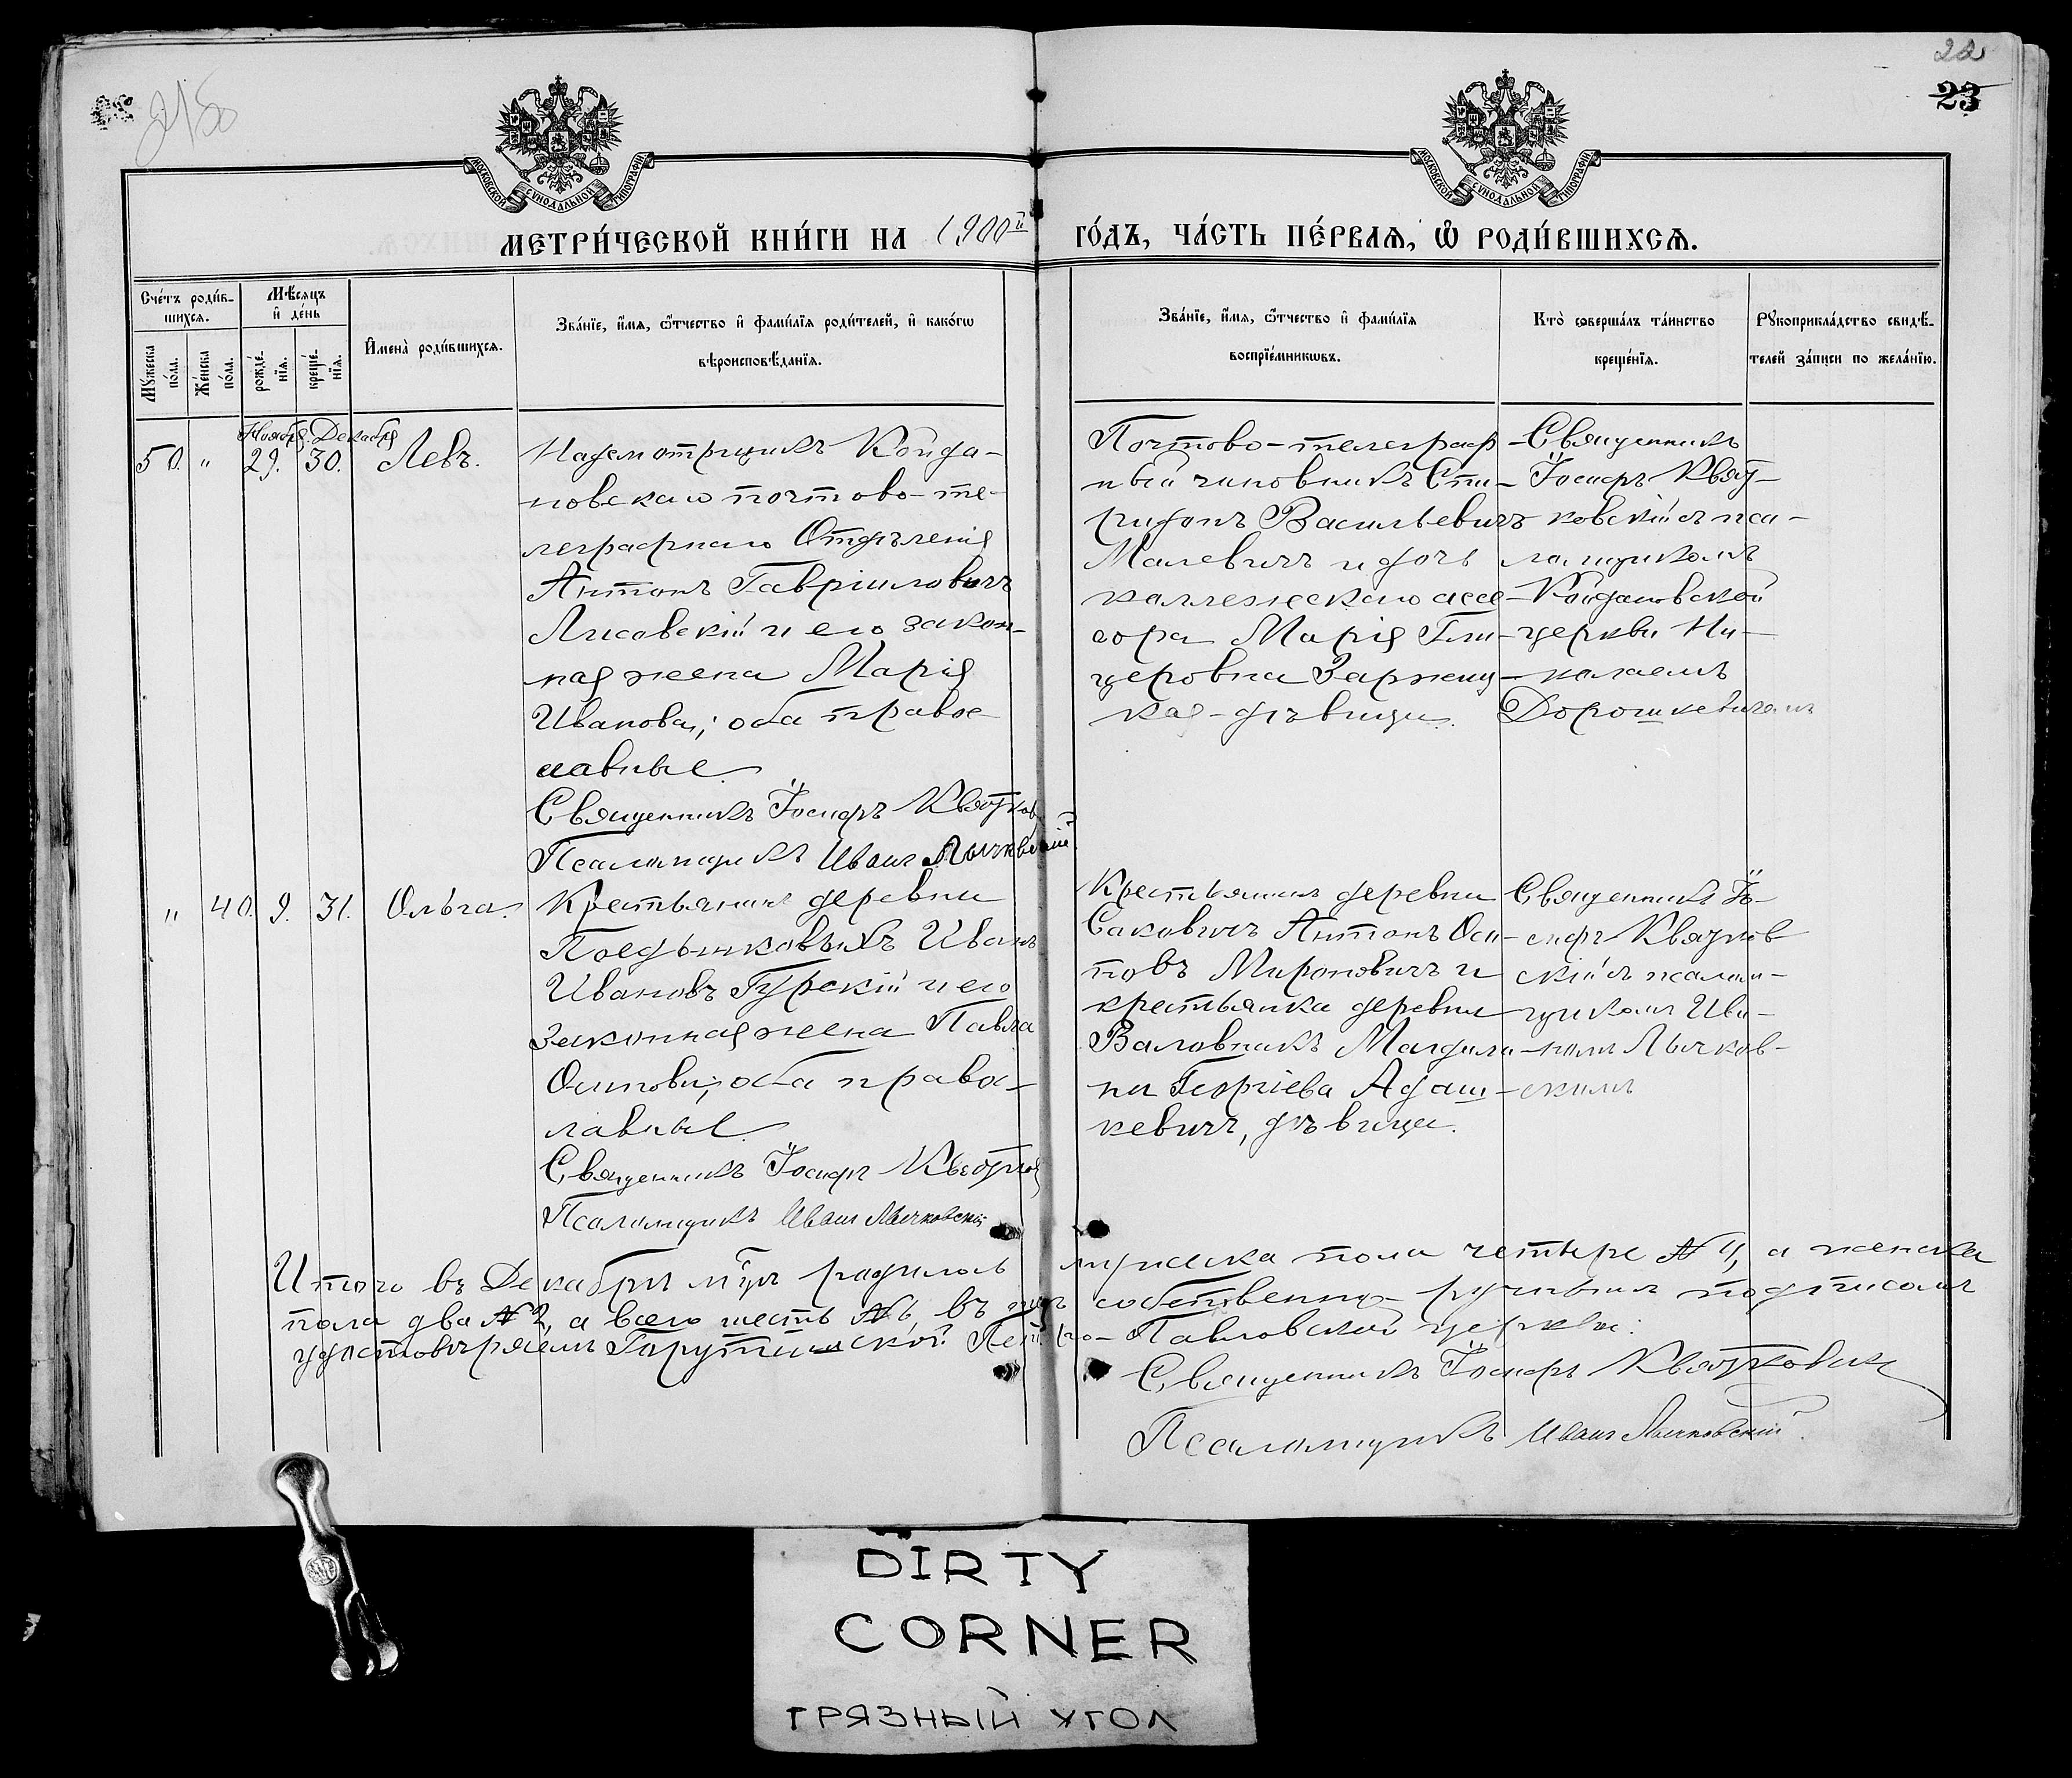 22
23
МОСКОВСКОЙ СѴНОДАЛЬНОЙ ТИПОГРАФІИ
МОСКОВСКОЙ СѴНОДАЛЬНОЙ ТИПОГРАФІИ
МЕТРИ́ЧЕСКОЙ КНИ́ГИ НА 1900й ГО́ДЪ, ЧА́СТЬ ПЕ́РВАѦ, Ѡ҆ РОДИ́ВШИХСѦ.
Сче́тъ роди́в-
шихсѧ.
Мꙋ́жеска
по́ла.
Же́нска
по́ла.
Мѣ́сѧцъ
и҆ де́нь
рожде́-
нїѧ.
креще́-
нїѧ.
И҆мена̀ роди́вшихсѧ.
Зва́нїе, и҆́мѧ, ѻ҆́тчество и҆ фами́лїѧ роди́телей, и҆ како́гѡ
вѣроисповѣ́данїѧ.
Зва́нїе, и҆́мѧ, ѻ҆́тчество и҆ фами́лїѧ
воспрїе́мникѡвъ.
Кто̀ соверша́лъ та́инство
креще́нїѧ.
Рꙋкоприкла́дство свидѣ́-
телей за́писи по жела́нїю.
Ноября Декабря
50. " 29. 30. Левъ.
Надсмотрщикъ Койда-
новскаго почтово-те-
леграфнаго Отдѣленія
Антонъ Гавріиловичъ
Лисовскій и его закон-
ная жена Марія
Иванова; оба право-
славные.
Священникъ Іосифъ Квятков
Псаломщикъ Иванъ Лычковскій
Почтово-телеграф-
ный чиновникъ Спи-
ридонъ Васильевичъ
Малевичъ и дочь
коллежскаго ассе-
сора Марія Гли-
церовна Заржец-
кая - дѣвица.
Священникъ
Іосифъ Квят-
ковскій съ пса-
ломщикомъ
Койдановской
церкви Ни-
колаемъ
Дорошкевичемъ
" 40. 9. 31. Ольга.
Крестьянинъ деревни
Иванъ
Ивановъ Гурскій и его
законная жена Павла
Осипова; оба право-
лавные.
Священникъ Іосифъ Квятков
Псаломщикъ Иванъ Лычковскій
Крестьянинъ деревни
Саковичъ Антонъ Оси-
повъ Мироновичъ и
крестьянка деревни
Валовникъ Магдали-
на Георгіева Адаш-
кевичъ, дѣвица.
Священникъ Іо-
сифъ Квятков-
скій съ псалом-
щикомъ Ива-
номъ Лычков-
скимъ
Итого въ Декабрѣ м-цѣ родилось мужеска пола четыре № 4, а женска
пола два № 2, а всего шесть № 6, въ чемъ собственно-ручнымъ подписомъ
удостовѣряемъ Петро-Павловской церкви:
Священникъ Іосифъ Квятковскій
Псаломщикъ Иванъ Лычковскій.
DIRTY
CORNER
ГРЯЗНЫЙ УГОЛ